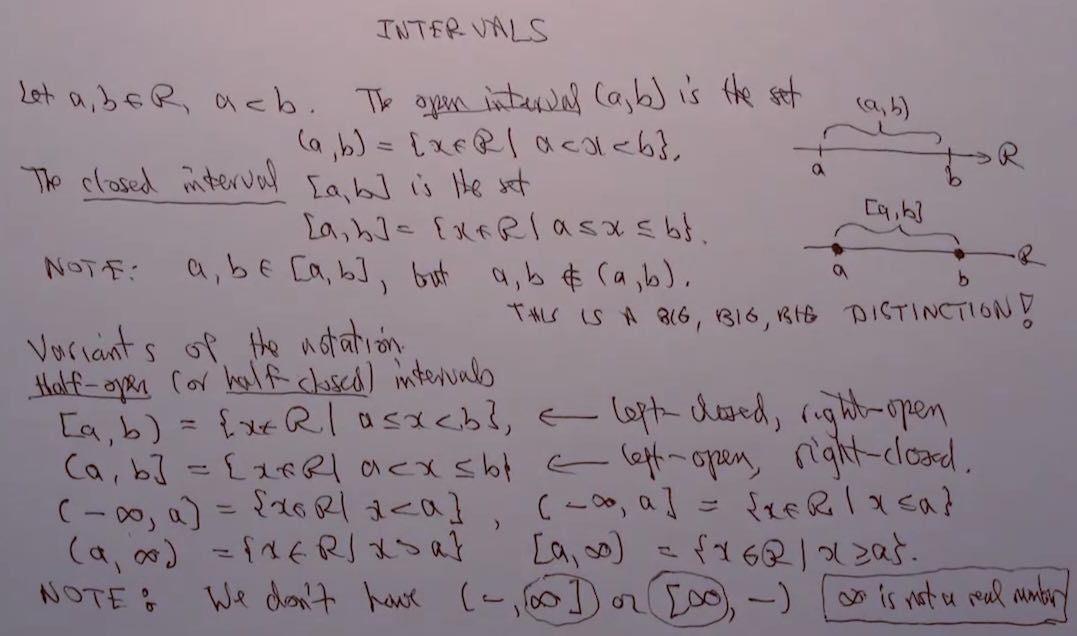 INTERVALS
Let a, b ∈ R, a < b. The open interval (a,b) is the set
(a,b) = {x ∈ R | a < x < b}.
The closed interval [a,b] is the set
[a,b] = {x ∈ R | a ≤ x ≤ b}.
NOTE: a, b ∈ [a,b], but a, b ∉ (a,b).
THIS IS A BIG, BIG, BIG DISTINCTION!
(a,b)
a b R
[a,b]
a b R
Variants of the notation.
Half-open (or half closed) intervals
[a,b) = {x ∈ R | a ≤ x < b}, ← left-closed, right-open
(a,b] = {x ∈ R | a < x ≤ b} ← left-open, right-closed.
(-∞, a] = {x ∈ R | x < a}, (-∞, a] = {x ∈ R | x ≤ a}
(a, ∞) = {x ∈ R | x > a} [a, ∞) = {x ∈ R | x ≥ a}.
NOTE: We don't have (-, ∞]) or [∞, -) ∞ is not a real number